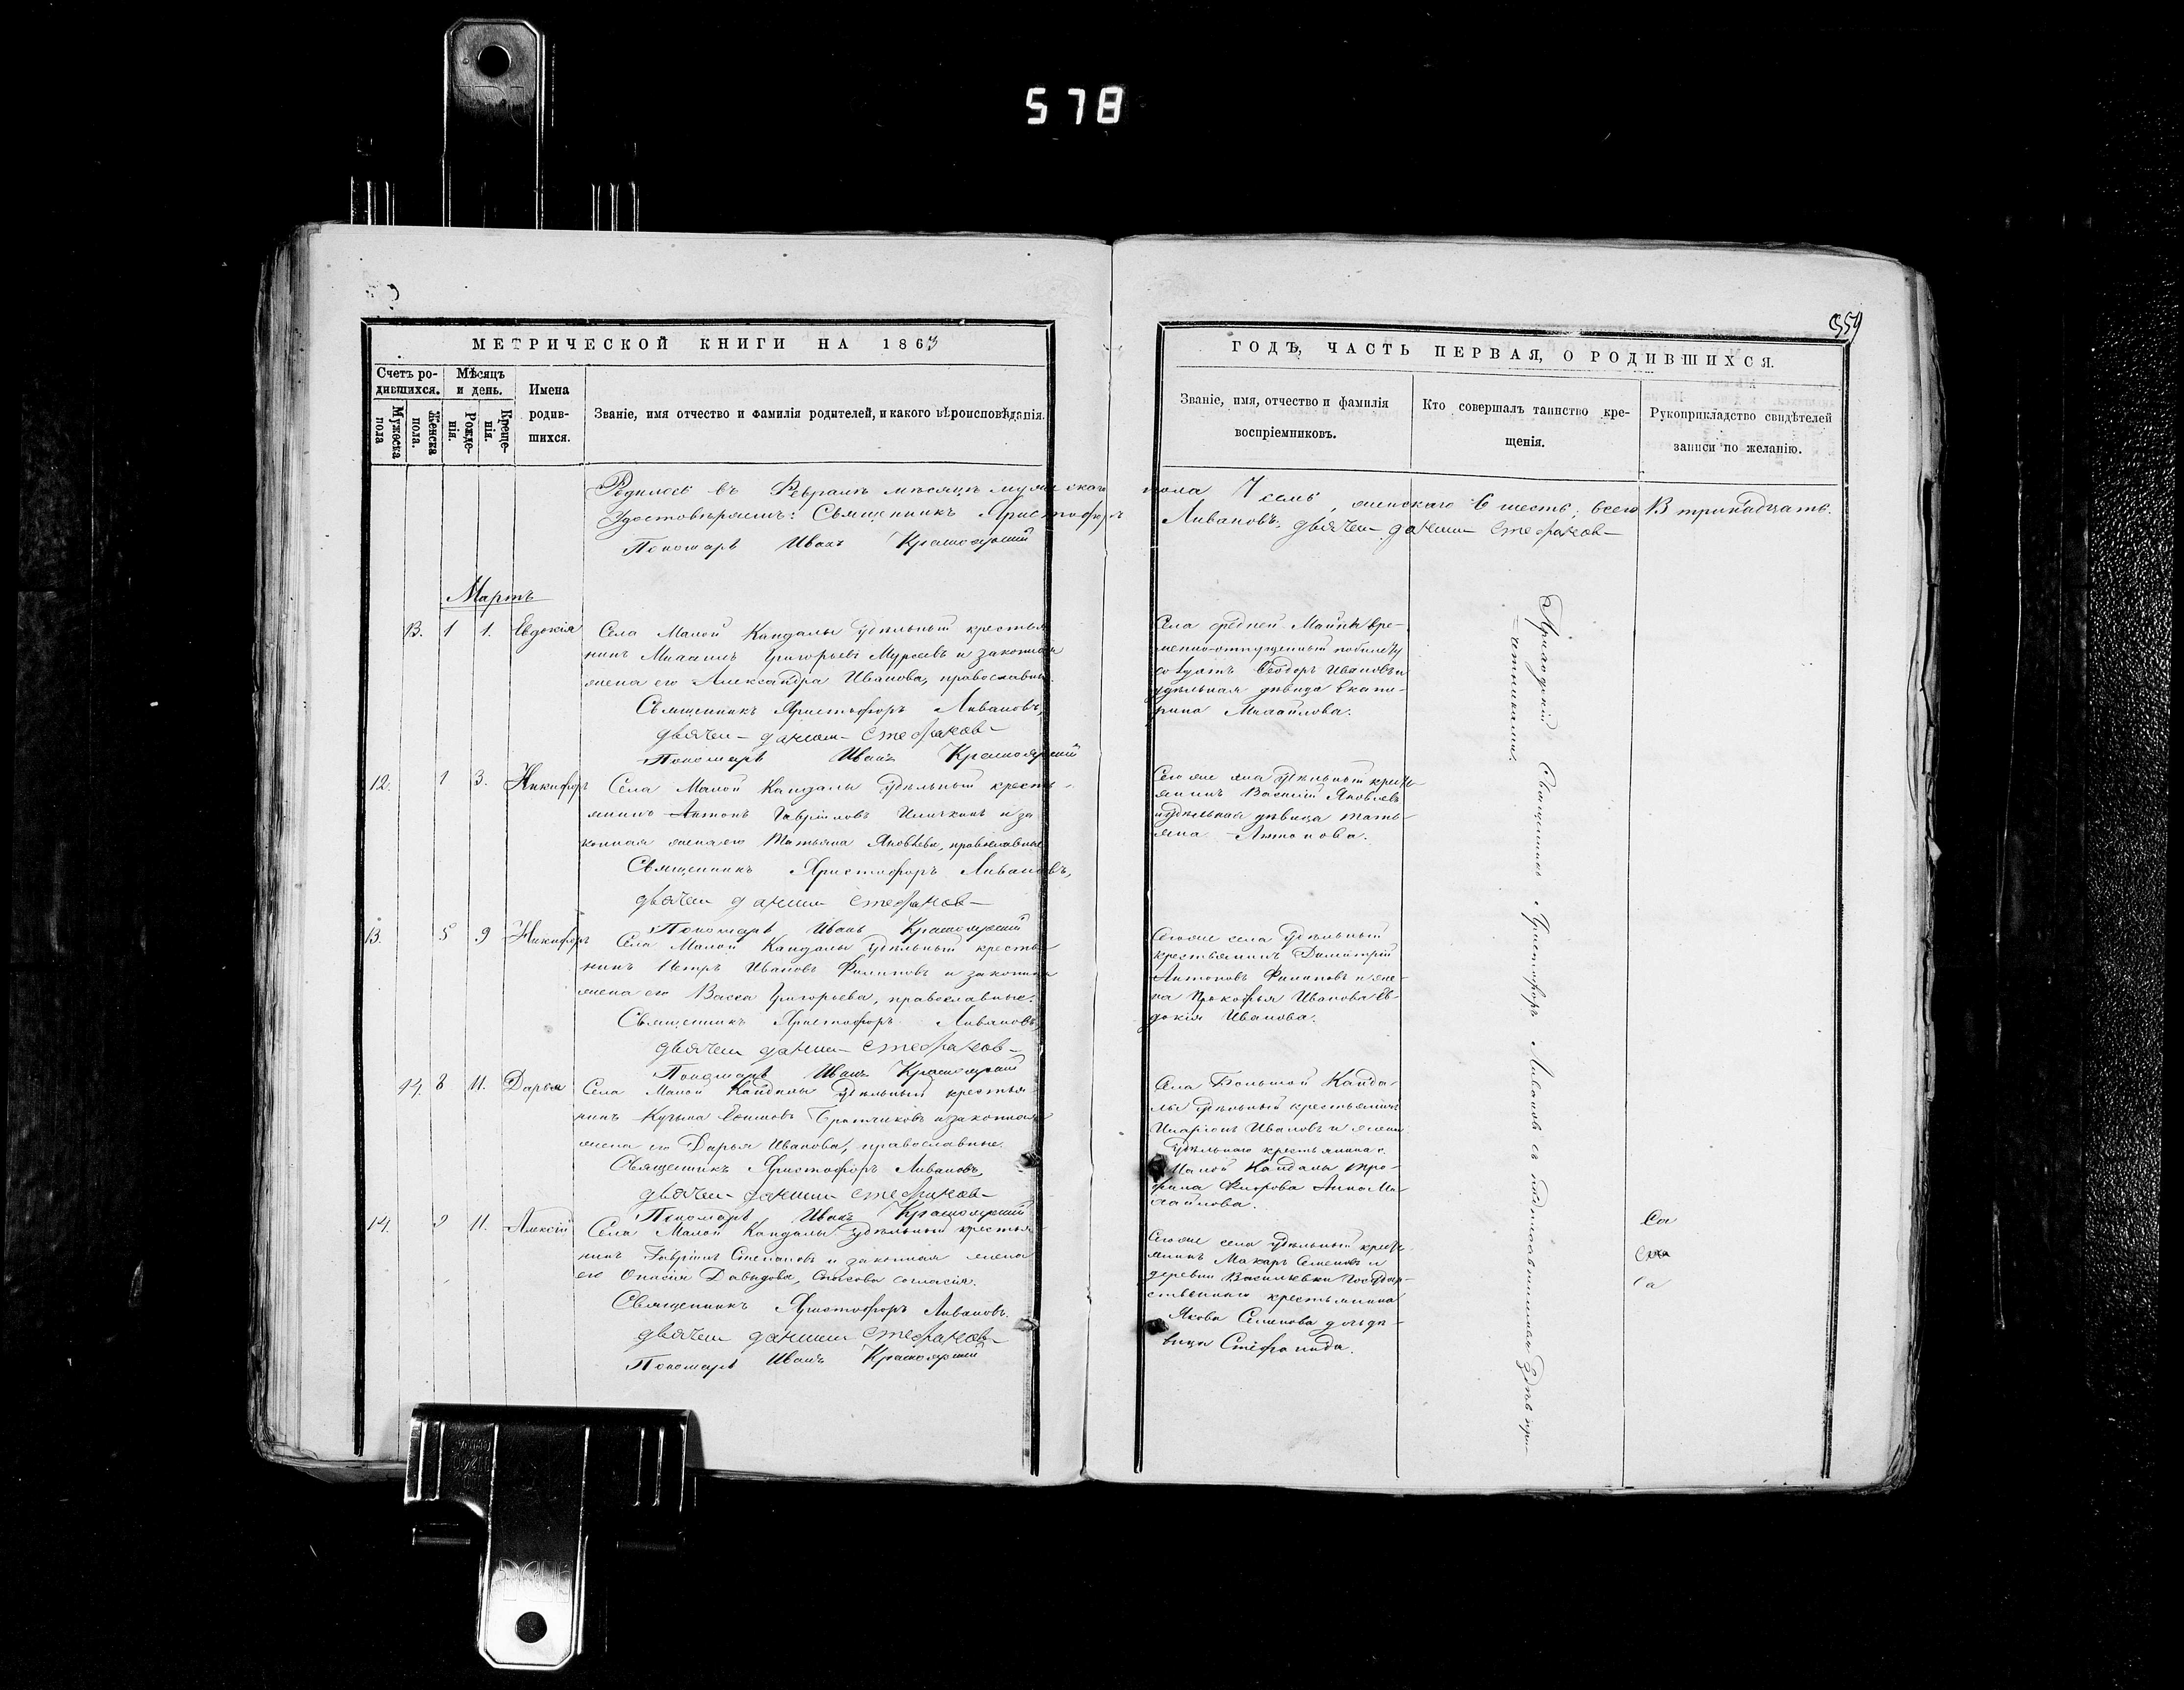 578
359
МЕТРИЧЕСКОЙ КНИГИ НА 1863
Счетъ ро-
дившихся.
Мужеска
пола
Женска
пола.
Мѣсяцъ
и день.
Рожде-
нія.
Креще-
нія.
Имена
родив-
шихся.
Званіе, имя отчество и фамилія родителей, и какого вѣроисповѣданія.
ГОДЪ, ЧАСТЬ ПЕРВАЯ, О РОДИВШИХСЯ.
Званіе, имя, отчество и фамилія
воспріемниковъ.
Кто совершалъ таинство кре-
щенія.
Рукоприкладство свидѣтелей
записи по желанію.
Родилось въ Февралѣ мѣсяцѣ мужескаго пола 7 семь, женскаго 6 шесть, всего 13 тринадцать.
Удостовѣряемъ: Священникъ Христофоръ Ливановъ. дьячекъ данiилъ Стефановъ
Пономарь Иванъ Красноярскій
Мартъ
13. 1 1. Евдокія
Села Малой Кандалы удѣльный крестья
нинъ Михаилъ Григорьевъ и законная
жена его Александра Иванова, православные.
Священникъ Христофоръ Ливановъ,
дьячекъ данiилъ Стефановъ
Пономарь Иванъ Красноярскій
Села средней Майны вре-
менно-отпущенный по билету
солдатъ Ѳеодоръ Ивановъ и
удѣльная дѣвица Екате-
рина Михайлова.
12. 1 3. Никифоръ
Села Малой Кандалы удѣльный кресть-
янинъ Антонъ Гавріиловъ и за
конная жена его Татьяна Яковлева, православные
Священникъ Христофоръ Ливановъ,
дьячекъ данiилъ Стефановъ
Пономарь Иванъ Красноярскій
удѣльный кресть
янинъ Василій Яковлевъ
и удѣльная дѣвица Тать-
яна Антонова.
13. 5 9 Никифоръ
Села Малой Кандалы удѣльный крестья
нинъ Петръ Ивановъ Филиповъ и законная
жена его Васса Григорьева, православные.
Священникъ Христофоръ Ливановъ,
дьячекъ данiилъ Стефановъ
Пономарь Иванъ Красноярскій
Сего же села удѣльный
крестьянинъ Димитрій
Антоновъ Филиповъ и же-
на Прокофья Иванова Ев-
докія Иванова.
14. 8 11. Дарья
Села Малой Кандалы удѣльный крестья
нинъ Кузьма и законная
жена его Дарья Иванова, православные.
Священникъ Христофоръ Ливановъ,
дьячекъ данiилъ Стефановъ
Пономарь Иванъ Красноярскій
Села Большой Канда-
лы удѣльный крестьянинъ
Иларіонъ Ивановъ и жена
удѣльнаго крестьянина с.
Малой Кандалы Тро-
фима Анна Ми-
хайлова.
14. 9 11. Алексій
Села Малой Кандалы удѣльный крестья
нинъ Гавріилъ Степановъ и законная жена
его Давыдова, Спасова согласія.
Священникъ Христофоръ Ливановъ.
дьячекъ данiилъ Стефановъ
Пономарь Иванъ Красноярскій
Сего же села удѣльный кресть
янинъ Макаръ Семеновъ и
деревни Васильевки Государ-
ственнаго крестьянина
Якова Семенова дочь дѣ-
вица Стефанида.
Приходскій Священникъ Христофоръ Ливановъ съ подписавшимися здѣсь при-
четниками.